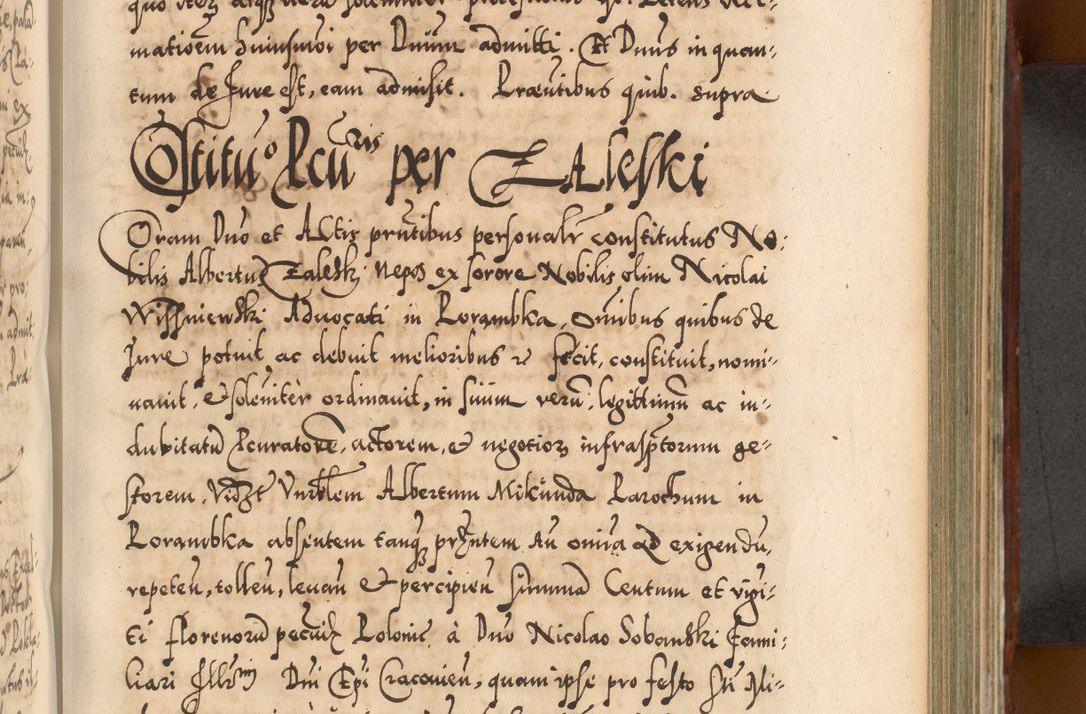 matioem huiusmoi per Dnum admitti. Et Dnus in quan-
tum de Jure est, eam admisit. Praesntibus quib. supra
Costituo Pcuris per Zaleski
Coram Dno et Actis prntibus personalr constitutus No-
bilis Albertus Zaleski Nepos ex sorore Nobilis olim Nicolai
Wissniewski Aduocati in Porambka, Omibus quibus de
Jure potuit ac debuit melioribus fecit, constituit, nomi-
nauit, et soleniter ordinauit, in suum verum, legittimum ac in-
dubitatum Pcuratorem, actorem, et negotior infrasptorum ge-
storem, Vidzt Vnrblem Albertum Mikunda Parochum in
Porambka absentem tanq prntem Au omia ad exigendu,
repeten, tollen, leuan et percipien summa Centum et vigi-
ti florenoru pecuae Poloniae à Dno Nicolao Sobanski Fami-
liari Illmi Dni Epi Cracouien, quam ipse pro festo Sti Mi-